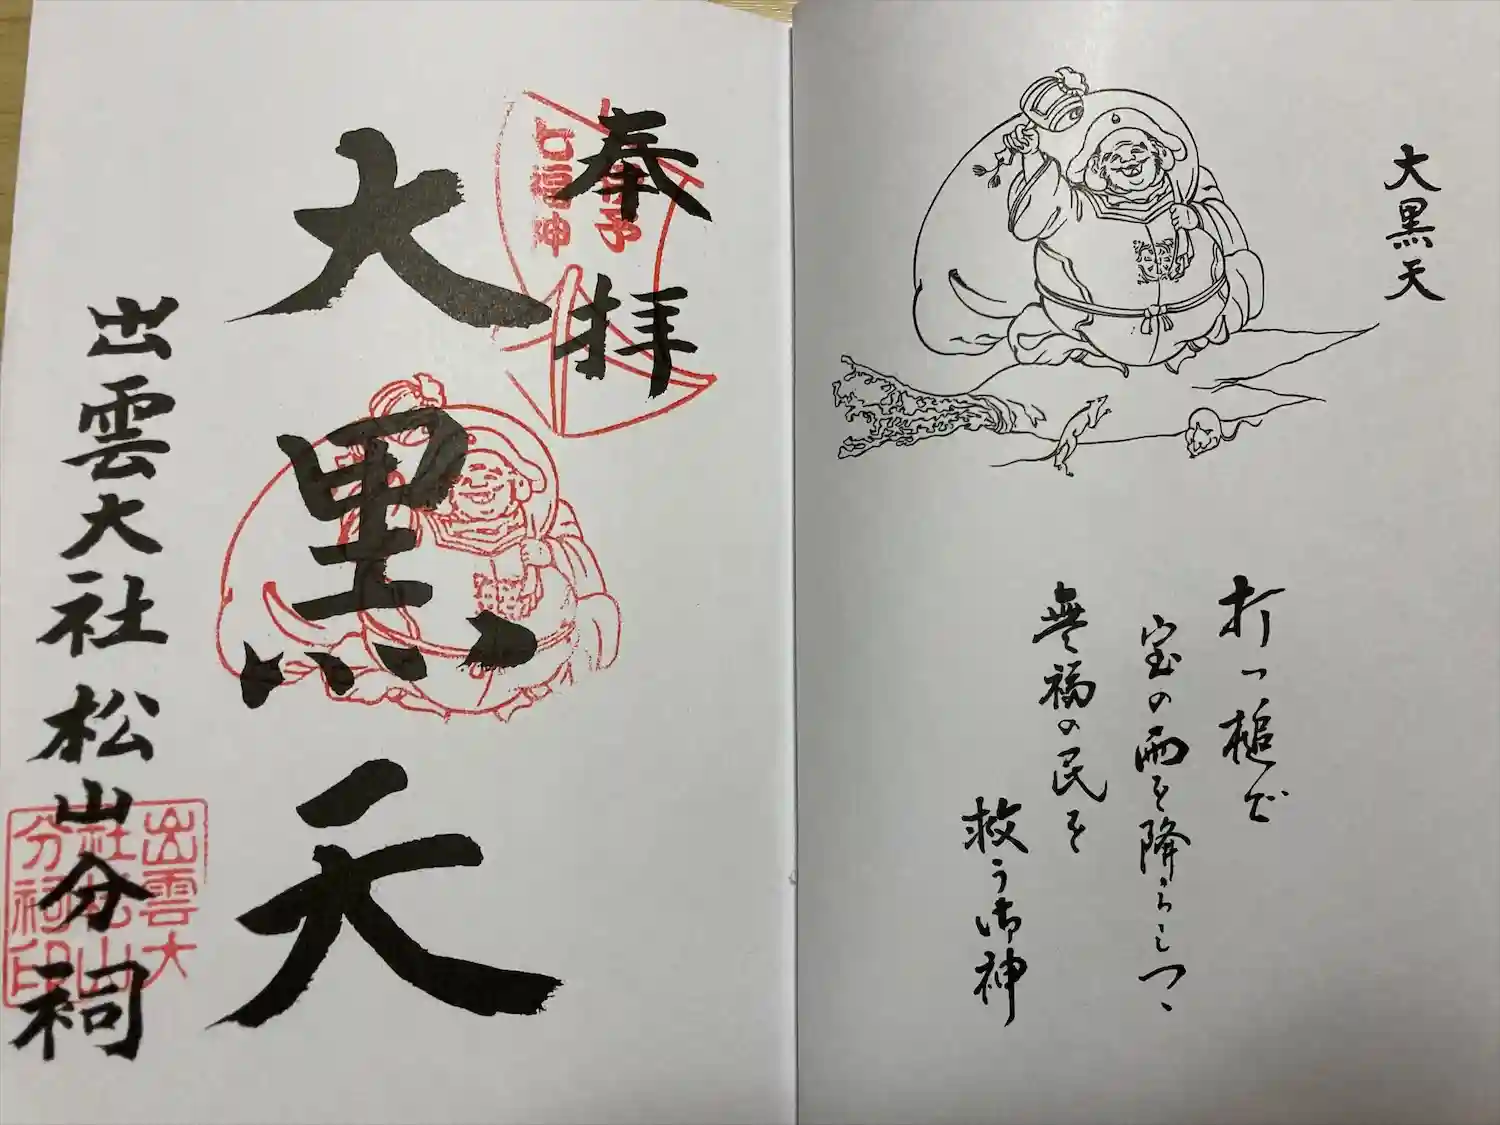 大黒天
打つ槌で
宝の雨を降らしつゝ
無福の民を
救う御神
奉拝
伊予
七福神
大黒天
出雲大社松山分祠
出雲大
社松山
分祠印